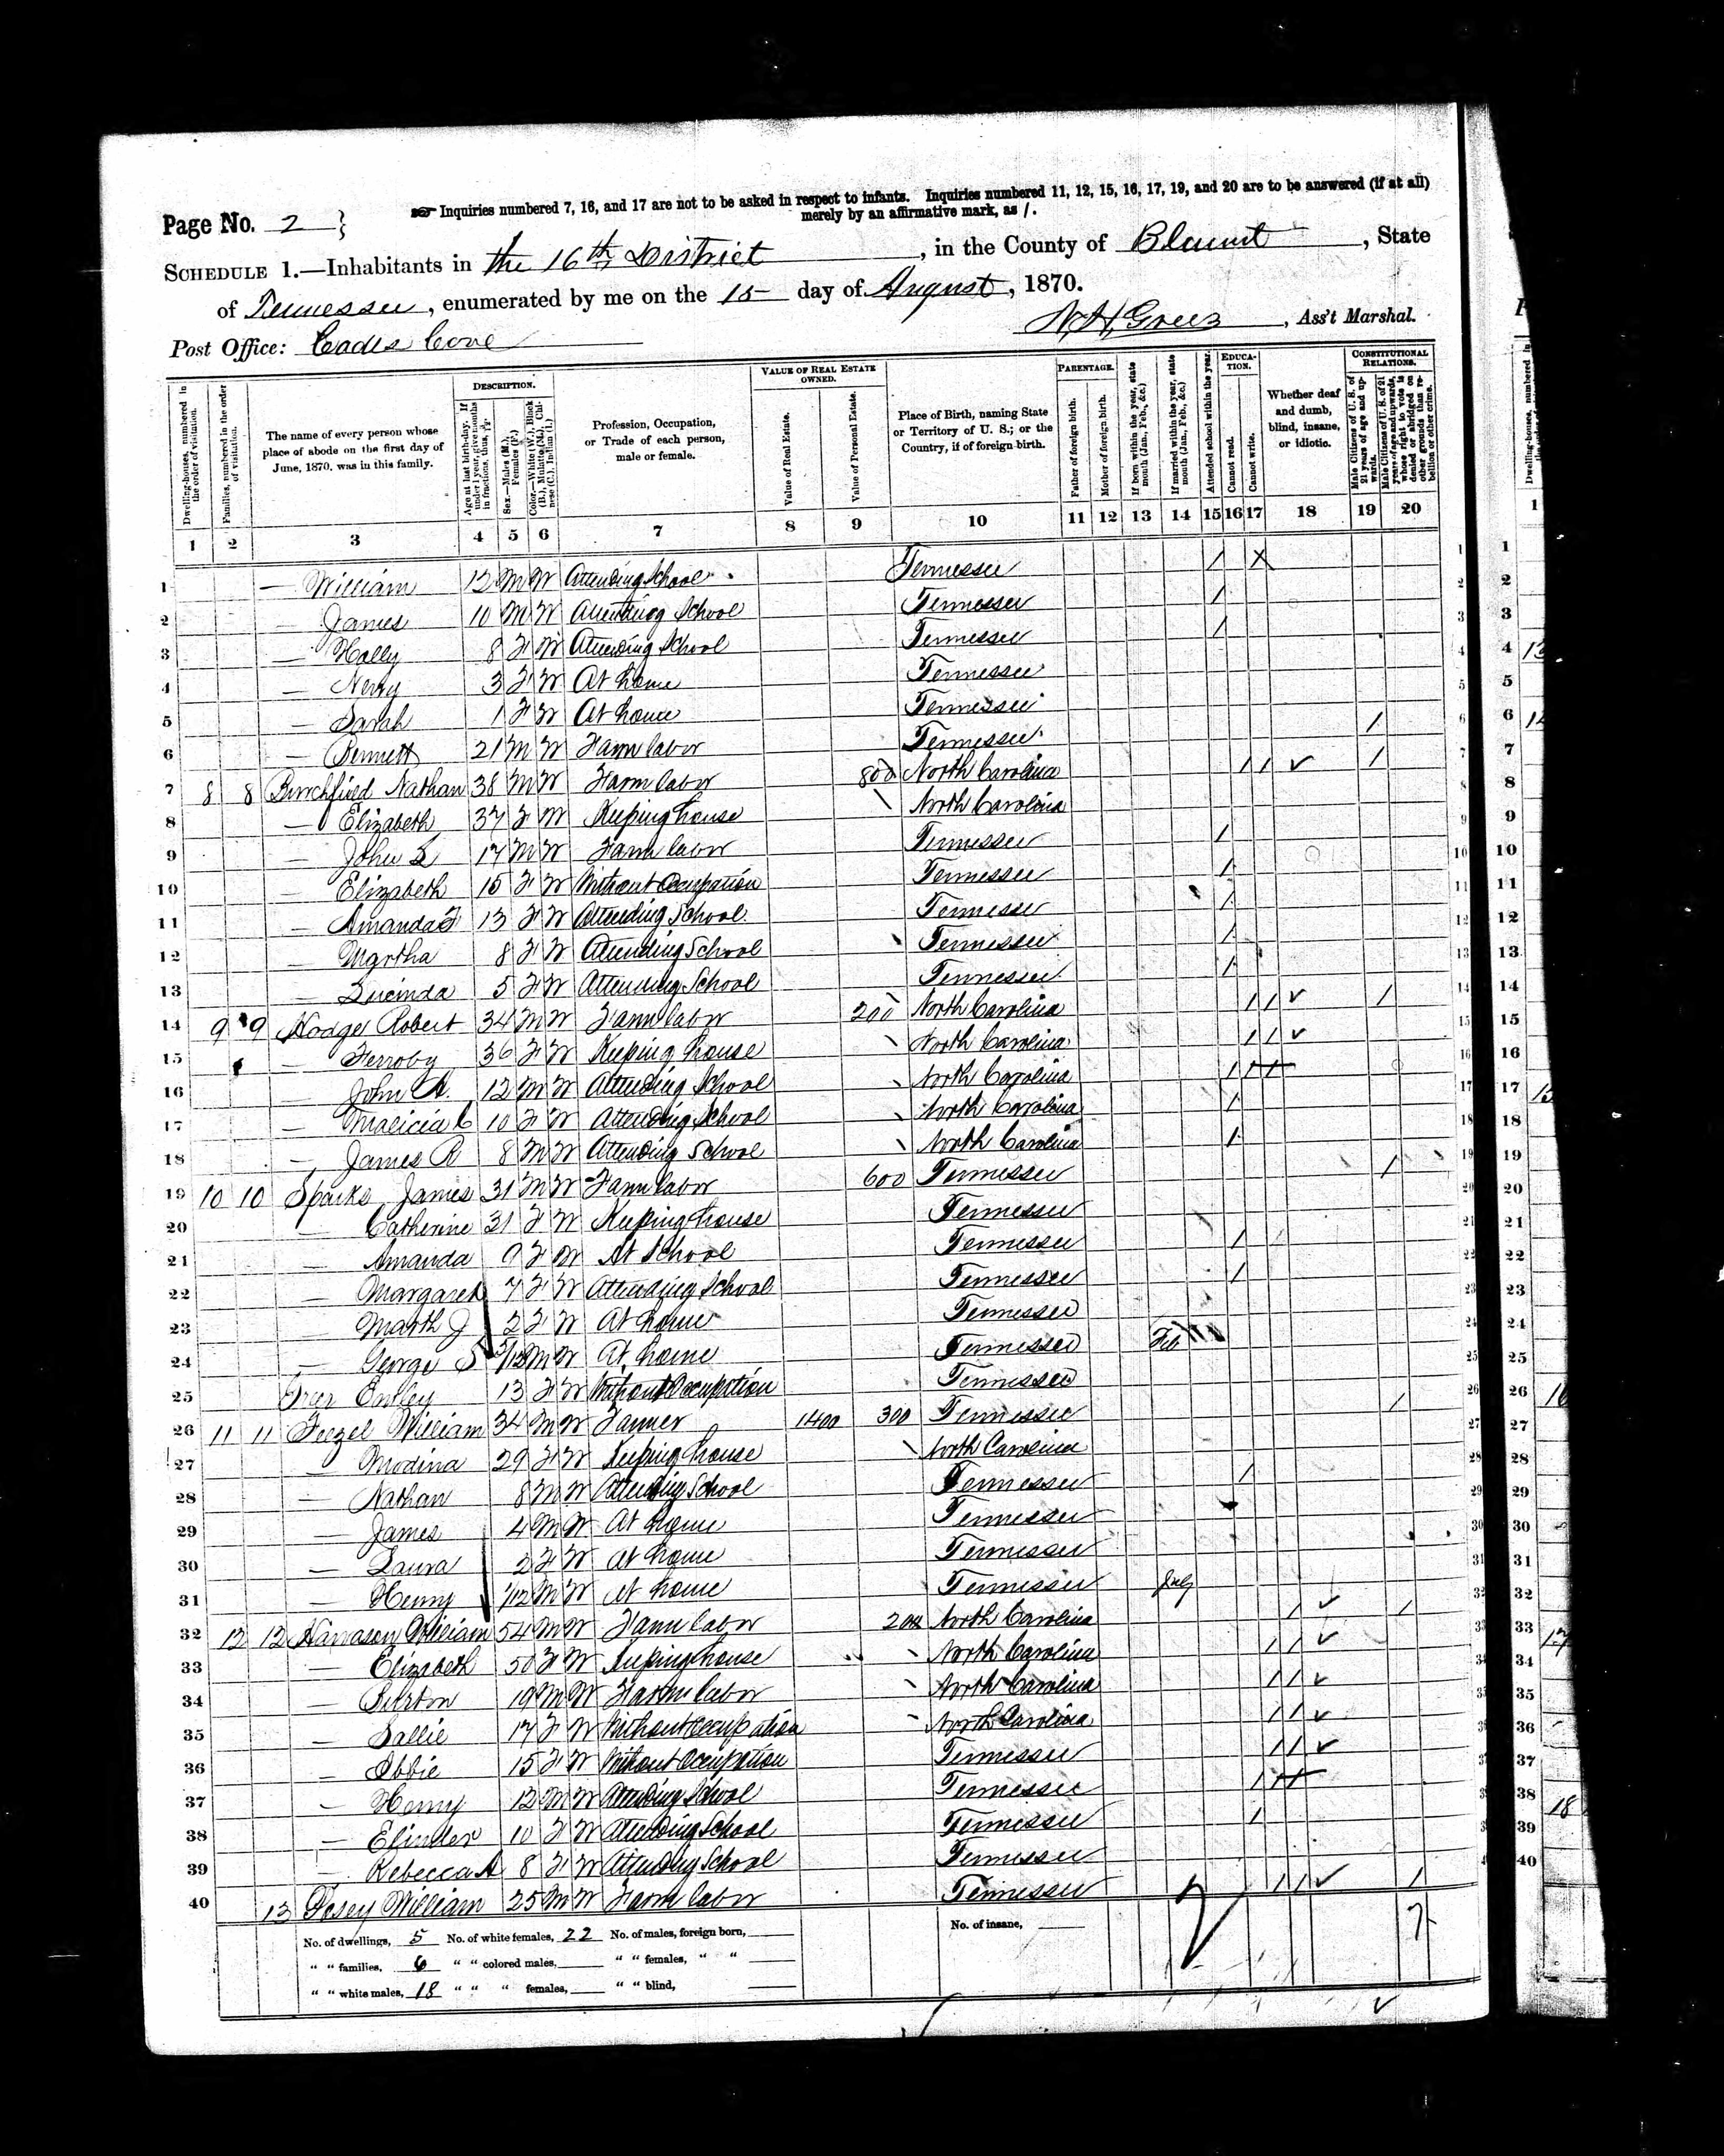 Inquiries numbered 7, 16, and 17 are not to be asked in respect to infants. Inquiries numbered 11, 12, 15, 16, 17, 19, and 20 are to be answered (if at all)
merely by an affirmative mark, as /.
Page No. 2
SCHEDULE 1.—Inhabitants in the 16th District, in the County of Blount, State
of Tennessee, enumerated by me on the 15 day of August, 1870.
Post Office: Cades Cove
Ass't Marshal.
DESCRIPTION.
VALUE OF REAL ESTATE OWNED.
PARENTAGE.
EDUCATION.
CONSTITUTIONAL RELATIONS.
Dwelling-houses, numbered in the order of visitation.
Families, numbered in the order of visitation.
The name of every person whose place of abode on the first day of June, 1870, was in this family.
Age at last birth-day. If under 1 year, give months in fractions, thus,
Sex.—Males (M.), Females (F.)
Color.—White (W.), Black (B.), Mulatto (M.), Chinese (C.), Indian (I.)
Profession, Occupation, or Trade of each person, male or female.
Value of Real Estate.
Value of Personal Estate.
Place of Birth, naming State or Territory of U. S.; or the Country, if of foreign birth.
Father of foreign birth.
Mother of foreign birth.
If born within the year, state month (Jan., Feb., &c.)
If married within the year, state month (Jan., Feb., &c.)
Attended school within the year.
Cannot read.
Cannot write.
Whether deaf and dumb, blind, insane, or idiotic.
Male Citizens of U. S. of 21 years of age and upwards.
Male Citizens of U. S. of 21 years of age and upwards, whose right to vote is denied or abridged on other grounds than rebellion or other crime.
1 2 3 4 5 6 7 8 9 10 11 12 13 14 15 16 17 18 19 20
1 — William 12 M W Attending School Tennessee / X
2 — James 10 M W Attending School Tennessee /
3 — 8 F W Attending School Tennessee /
4 — 3 F W At home Tennessee
5 — Sarah 1 F W At home Tennessee
6 — Bennett 21 M W Farm labor Tennessee /
7 8 8 Burchfield Nathan 38 M W Farm labor 800 North Carolina / / ✓ /
8 — Elizabeth 37 F W Keeping house North Carolina
9 — John S 17 M W Farm labor Tennessee /
10 — Elizabeth 15 F W Without Occupation Tennessee /
11 — Amanda 13 F W Attending School Tennessee /
12 — Martha 8 F W Attending School Tennessee /
13 — Lucinda 5 F W Attending School Tennessee /
14 9 9 Hodge Robert 34 M W Farm labor 200 North Carolina / / ✓ /
15 — Ferroby 36 F W Keeping house North Carolina / / ✓
16 — John A. 12 M W Attending School North Carolina /
17 — Malicia C 10 F W Attending School North Carolina /
18 — James R 8 M W Attending School North Carolina /
19 10 10 Sparks James 31 M W Farm labor 600 Tennessee /
20 — Catherine 31 F W Keeping house Tennessee
21 — Amanda 9 F W At School Tennessee /
22 — Margaret 7 F W Attending School Tennessee /
23 — Marth J 2 F W At home Tennessee
24 — George S M W At home Tennessee Feb
25 13 F W Without Occupation Tennessee
26 11 11 Feezel William 34 M W Farmer 1400 300 Tennessee /
27 — Modina 29 F W Keeping house North Carolina
28 — Nathan 8 M W Attending School Tennessee /
29 — James 4 M W At home Tennessee
30 — Laura 2 F W At home Tennessee
31 — Henry M W At home Tennessee July
32 12 12 William 54 M W Farm labor 200 North Carolina / ✓ /
33 — Elizabeth 50 F W Keeping house North Carolina / / ✓
34 — Burton 19 M W Farm labor North Carolina / / ✓
35 — Sallie 17 F W Without Occupation North Carolina / / ✓
36 — 15 F W Without Occupation Tennessee / / ✓
37 — Henry 12 M W Attending School Tennessee /
38 — Elinder 10 F W Attending School Tennessee /
39 — Rebecca A 8 F W Attending School Tennessee
40 13 Posey William 25 M W Farm labor Tennessee / / ✓ /
No. of dwellings, 5 No. of white females, 22 No. of males, foreign born, No. of insane, 7
" " families, 6 " " colored males, " " females, " "
" " white males, 18 " " " females, " " blind,